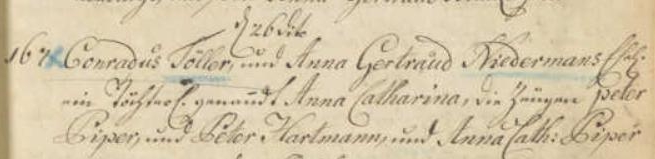 d 26 dito
167 Conradus Töller, und Anna Gertraud Niedermans Ehel.
ein Töchterl. genandt Anna Catharina, die Zeügen Peter
Piper, und Peter Hartmann, und Anna Cath: Piper